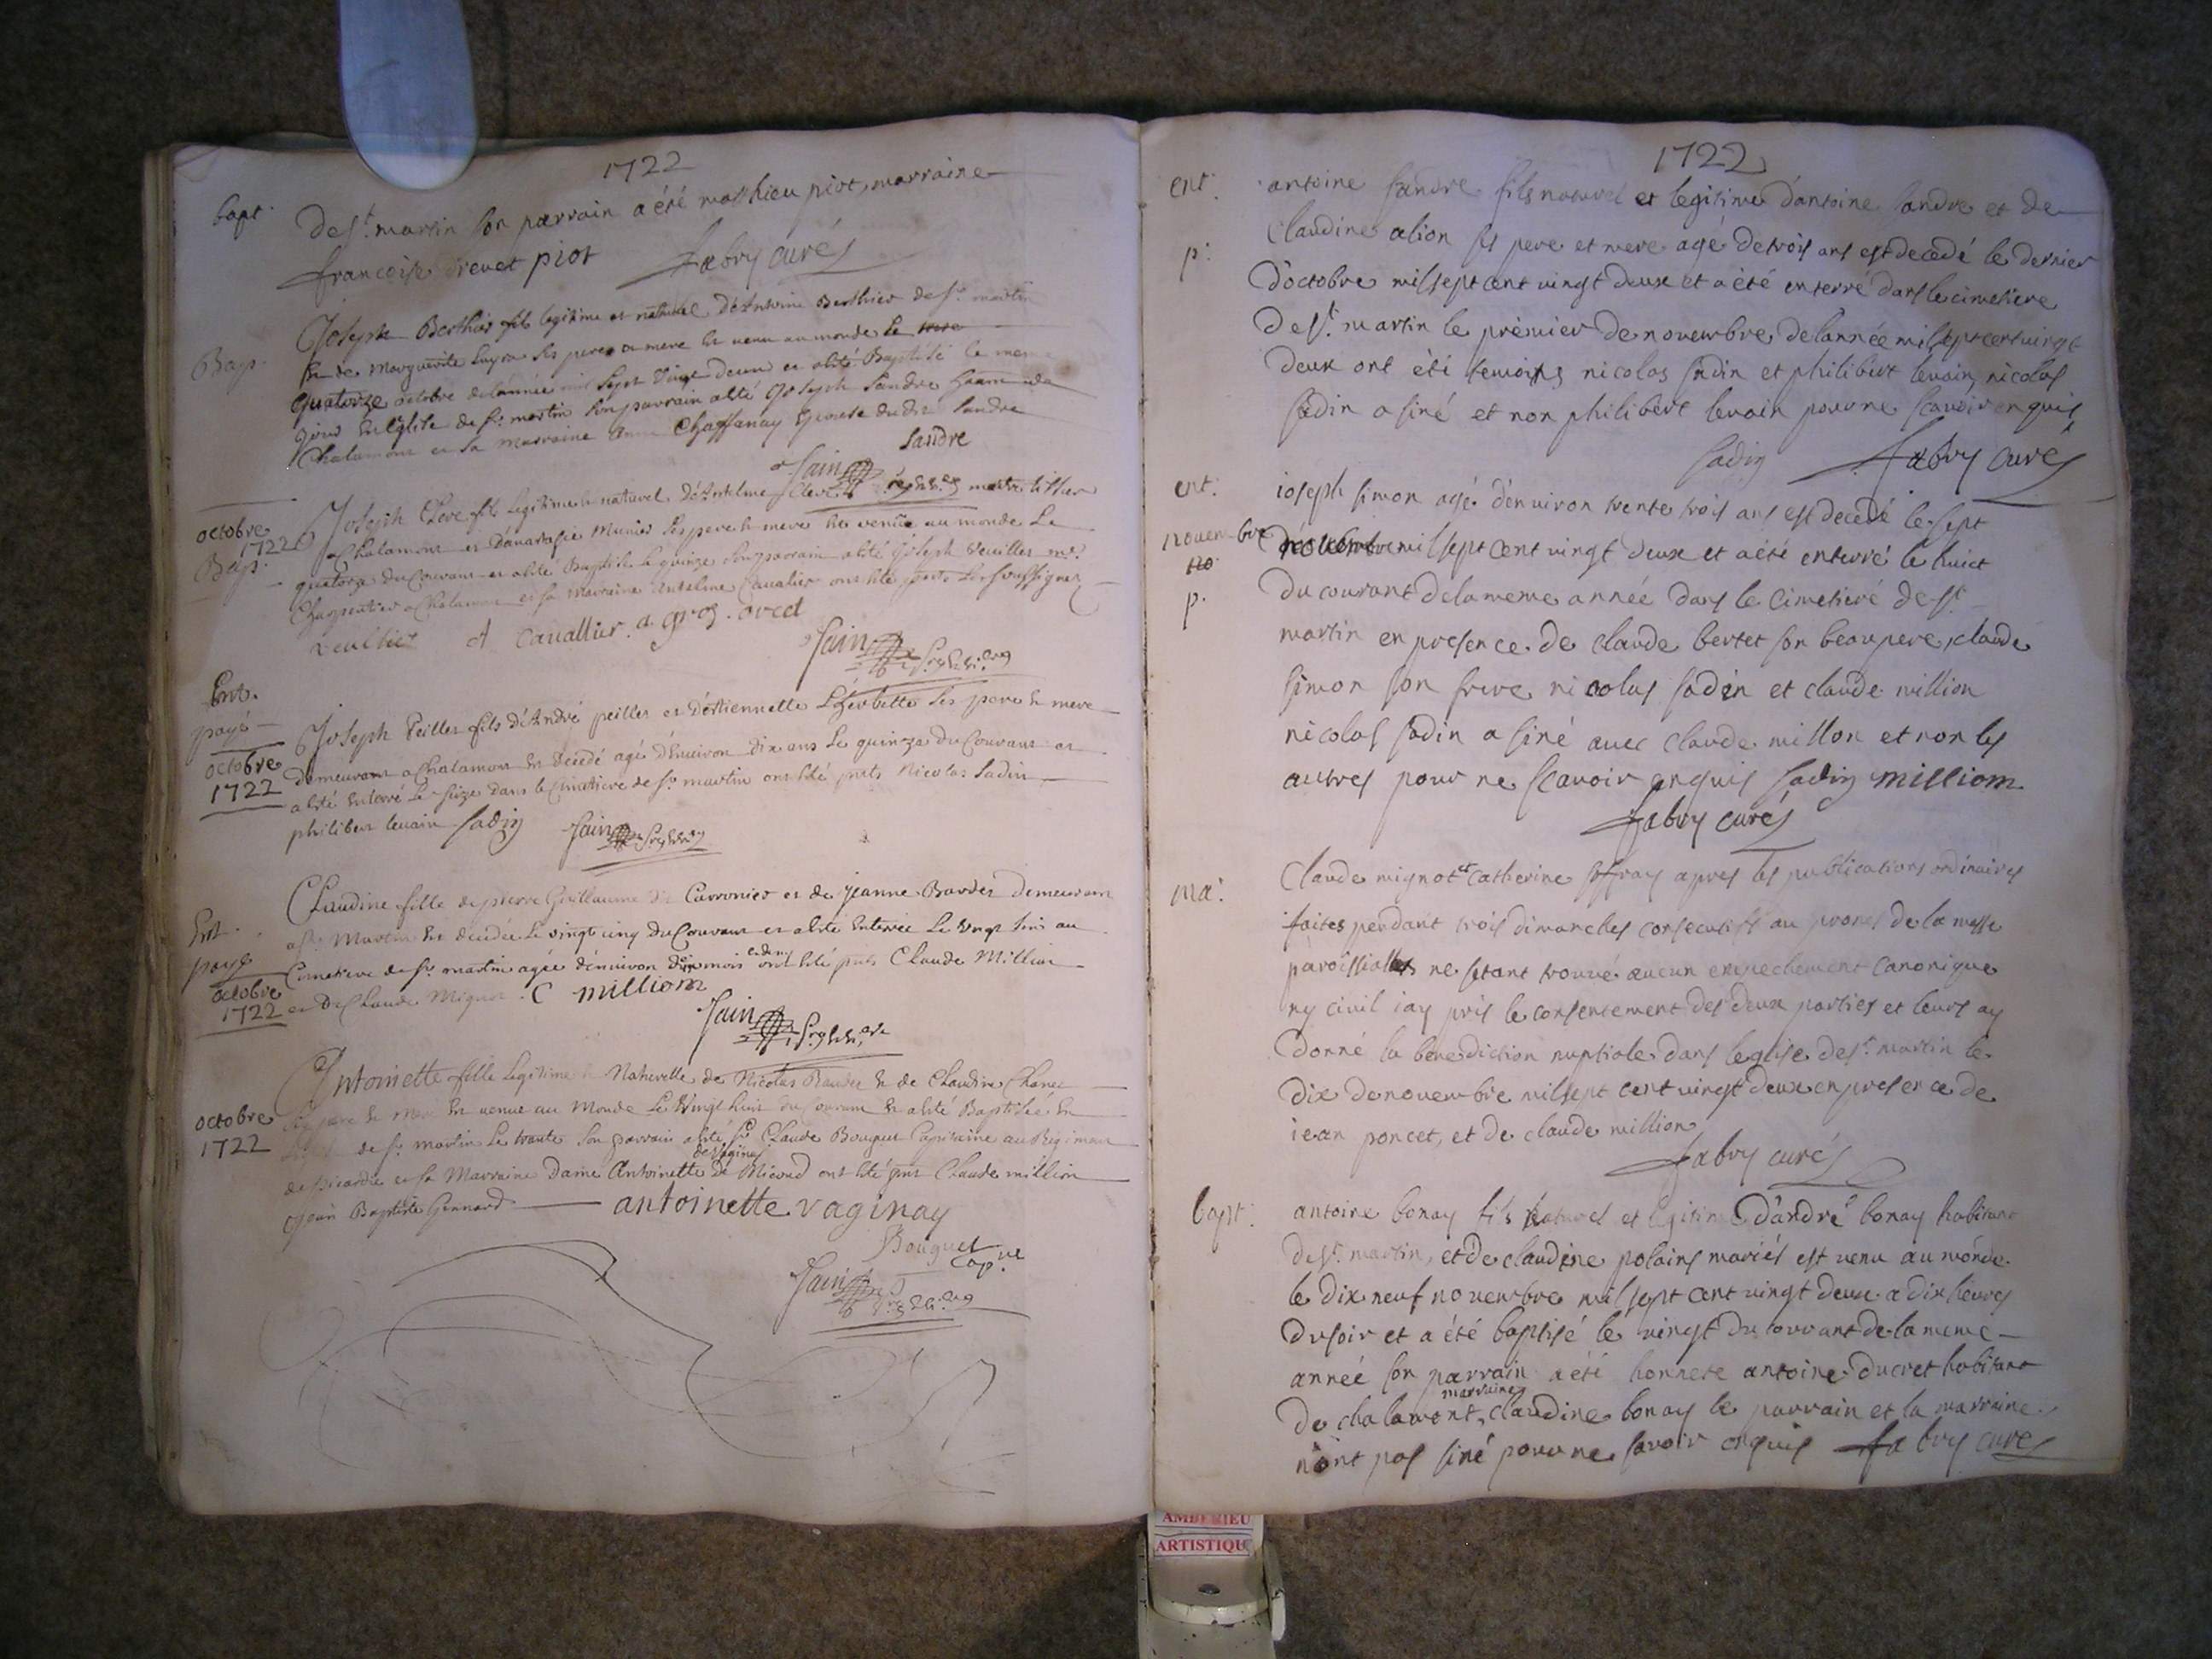 1722
bapt.
de st. martin son parrain a été mathieu piot, marraine
francoise drevet piot fabry curé
Bap.
Joseph Berthier fils legitime et naturel d'Antoine Berthier de st. martin
et de Marguerite ses pere et mere est venu au monde le
quatorze octobre de l'année mil sept vingt deux et a été Baptisé le meme
jour En Eglise de st. martin son parrain a été Joseph Sandre
Chalamont et sa marraine Anne Chaffanay Epouse du dit Sandre
Sandre
Jain
octobre
1722
Bap.
Joseph Cleve fils Legitime et naturel d'Antelme Cleve maitre
a Chalamont et d'anastasie Munier ses pere et mere est venu au monde le
quatorze du Courant et a été Baptisé le quinze son parrain a été Joseph veuillet me.
Charpentier a Chalamont et sa Marraine Antelme Cavalier ont été pnts les soussignez
veulliet A Cavallier. a. gros. ovet
Jain
Ent.
payé
octobre
1722
Joseph Peillet fils d'André peillet et d'Estiennette ses pere et mere
demeurant a Chalamont Est decedé agé d'Environ dix ans le quinze du Courant et
a été Enterré le seize dans le Cimetiere de st. martin ont été pnts Nicolas Sadin
philibert levain sadin Jain
Ent.
payé
octobre
1722
Claudine fille de pierre Guillaume dit Carronier et de Jeanne Bardet demeurant
a st. Martin Est decedée le vingt cinq du Courant et a été Enterrée Le vingt six au
Cimetiere de st. martin agée d'environ mois ont été pnts Claude Million
et De Claude Mignot. C million
Jain
octobre
1722
Antoinette fille Legitime et Naturelle de Nicolas et de Claudine
ses pere et mere Est venue au Monde Le vingt huit du Courant Et a été Baptisée En
de st. martin Le trente son parrain a été sr. Claude Bouquet Capitaine au Regiment
de vaginay
de Picardie et sa Marraine Dame Antoinette De Micoud ont été pnts Claude million
Jean Baptiste antoinette vaginay
Bouquet
Cap.ne
Jain
1722
ent.
p.
antoine sandre fils naturel et legitime d'antoine sandre et de
claudine alion ses pere et mere agé de trois ans est decedé le dernier
d'octobre mil sept cent vingt deux et a été enterré dans le cimetiere
de st. martin le premier de novembre de l'année mil sept cent vingt
deux ont été temoins nicolas sadin et philibert levain, nicolas
sadin a siné et non philibert levain pour ne scavoir enquis
sadin fabry curé
ent.
novembre
no
p.
ioseph simon agé d'environ trente trois ans est decedé le sept
novembre mil sept cent vingt deux et a été enterré le huict
du courant de la meme année dans le cimetiere de st.
martin en presence de claude bertet son beaupere, claude
simon son frere nicolas sadin et claude million
nicolas sadin a siné avec claude millon et non les
autres pour ne scavoir enquis sadin milliom
fabry curé
ma.
Claude mignot et catherine apres les publications ordinaires
faites pendant trois dimanches consecutifs au prones de la messe
paroissialles ne setant trouvé aucun empechement canonique
ny civil iay pris le consentement des deux parties et leurs ay
donné la benediction nuptiale dans leglise de st. martin le
dix de novembre mil sept cent vingt deux en presence de
iean poncet, et de claude million
fabry curé
bapt.
antoine bonay fils naturel et legitime d'andré bonay habitant
de st. martin, et de claudine polains mariés est venu au monde
le dix neuf novembre mil sept cent vingt deux a dix heures
du soir et a été baptisé le vingt du courant de la meme
année son parrain a été honnete antoine ducret habitant
marraine
de chalamont, claudine bonay le parrain et la marraine
n'ont pas siné pour ne savoir enquis fabry curé
AMBERIEU
ARTISTIQU